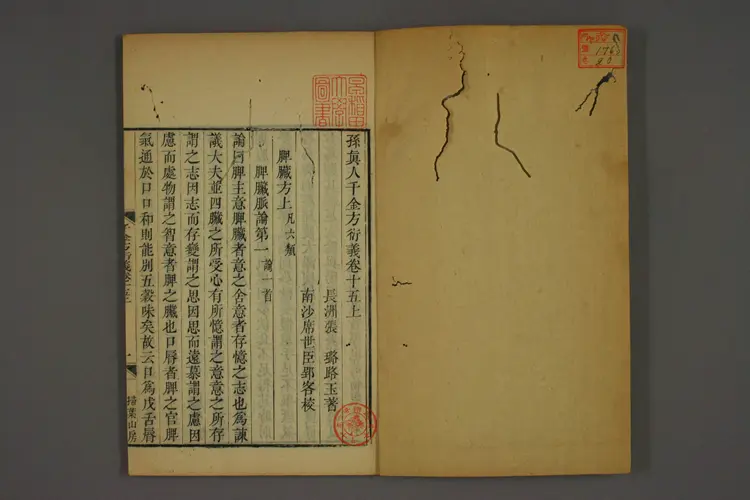 孫真人千金方衍義卷十五上
長洲張 璐路玉著
南沙席世臣郢客校
脾臟方上 凡六類
脾臟脈論第一 論一首
論曰脾主意脾臟者意之舍意者存憶之志也為諫
議大夫並四臟之所受心有所憶謂之意意之所存
謂之志因志而存變謂之思因思而遠慕謂之慮因
慮而處物謂之智意者脾之臟也口唇者脾之官脾
氣通於口口和則能別五穀味矣故云口為戍舌唇
掃葉山房
早稻田大學圖書